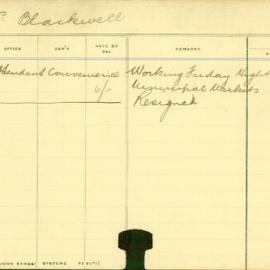 Blackwell
OFFICE DEP'T RATE OF PAY REMARKS
ttendant Convenience Working Friday Night
6/- Municipal Markets
Resigned
SYSTEMS